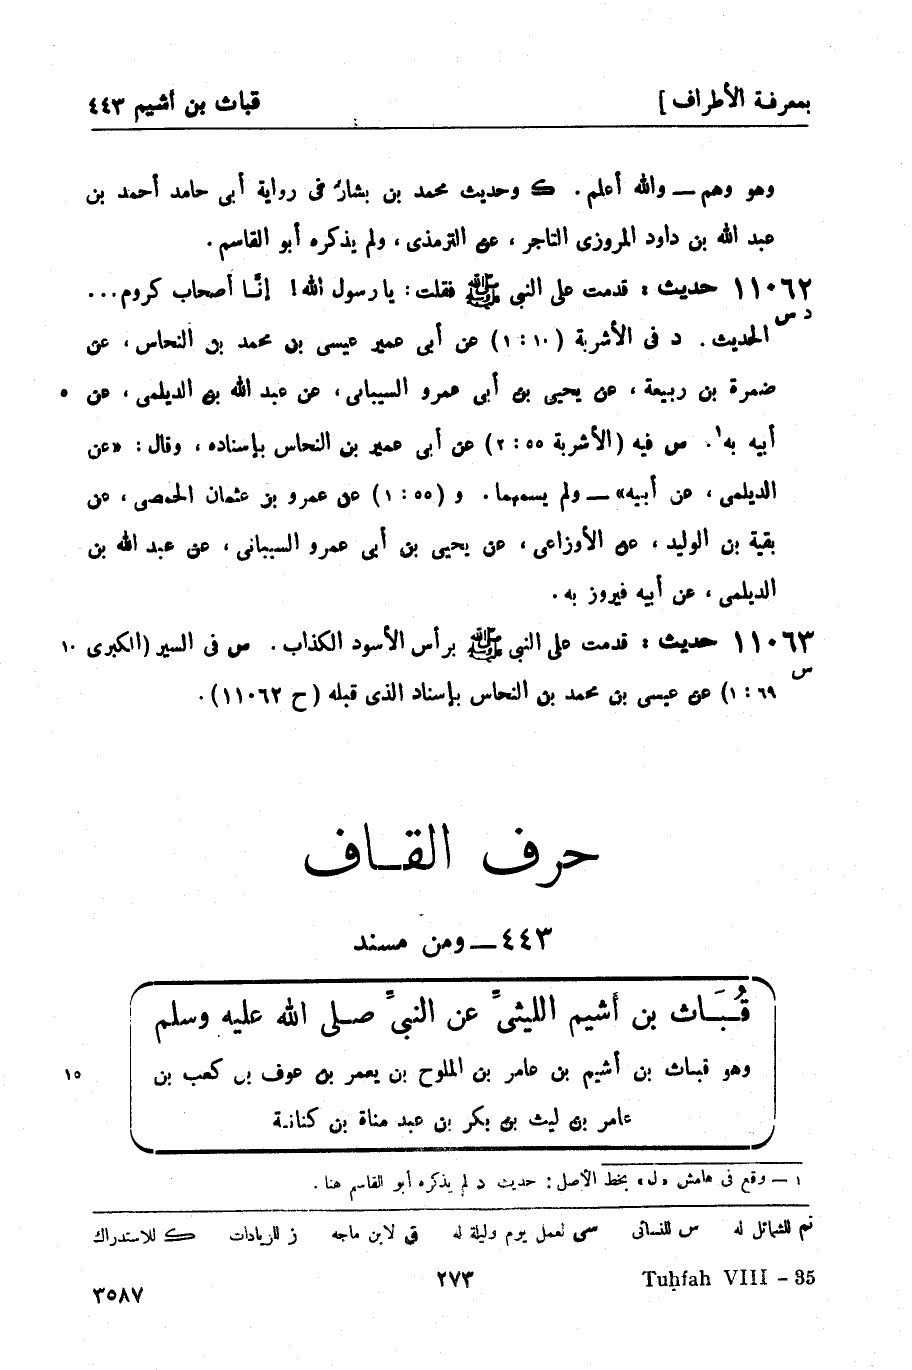 بمعرفة الأطراف ] قباث بن أشيم ٤٤٣
وهو وهم — والله أعلم. ك وحديث محمد بن بشار فى رواية أبى حامد أحمد بن
عبد الله بن داود المروزى التاجر، عن الترمذى، ولم يذكره أبو القاسم.
١١٠٦٢ حديث : قدمت على النبى ﷺ فقلت: يا رسول الله! إنَّا أصحاب كروم...
د س
الحديث. د فى الأشربة (١٠ : ١) عن أبى عمير عيسى بن محمد بن النحاس، عن
ضمرة بن ربيعة، عن يحيى بن أبى عمرو السيبانى، عن عبد الله بن الديلمى، عن ٥
أبيه به١. س فيه (الأشربة ٥٥ : ٢) عن أبى عمير بن النحاس بإسناده، وقال: «عن
الديلمى، عن أبيه» — ولم يسمهما. و (٥٥ : ١) عن عمرو بن عثمان الحمصى، عن
بقية بن الوليد، عن الأوزاعى، عن يحيى بن أبى عمرو السيبانى، عن عبد الله بن
الديلمى، عن أبيه فيروز به.
١١٠٦٣ حديث : قدمت على النبى ﷺ برأس الأسود الكذاب. س فى السير (الكبرى ١٠
س
٦٩ : ١) عن عيسى بن محمد بن النحاس بإسناد الذى قبله (ح ١١٠٦٢).
حرف القاف
٤٤٣ — ومن مسند
قُبَاث بن أشيم الليثىّ عن النبىّ صلى الله عليه وسلم
وهو قباث بن أشيم بن عامر بن الملوح بن يعمر بن عوف بن كعب بن ١٥
عامر بن ليث بن بكر بن عبد مناة بن كنانة
١ — وقع فى هامش «ل» بخط الأصل: حديث د لم يذكره أبو القاسم هنا.
تم للشمائل له س للنسائى سى لعمل يوم وليلة له ق لابن ماجه ز للزيادات ك للاستدراك
Tuḥfah VIII – 35 ٢٧٣ ٣٥٨٧